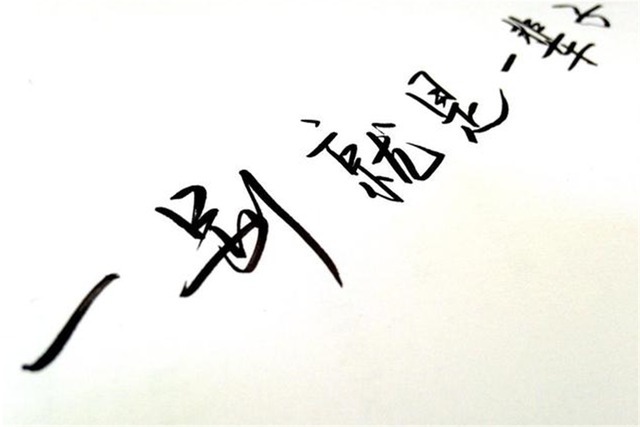 一别就是一辈子